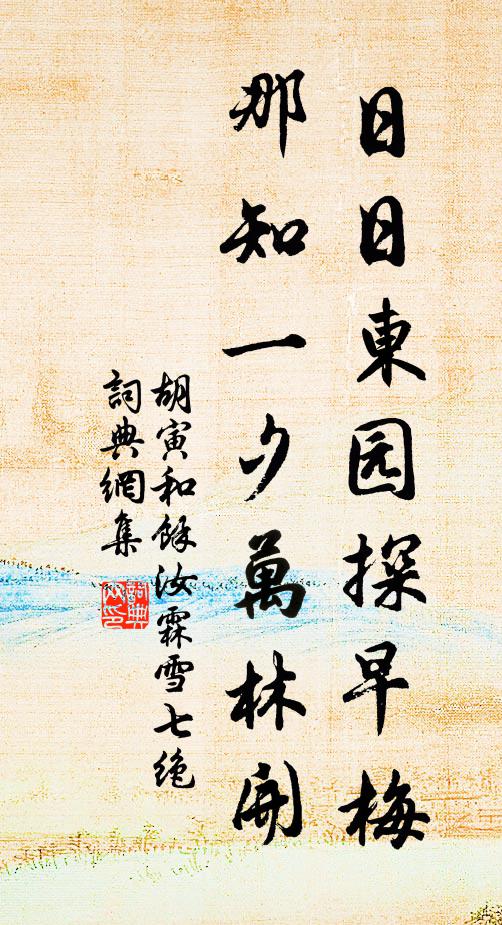 日日東园探早梅
那知一夕萬林開
胡寅和餘汝霖雪七绝
詞典網集